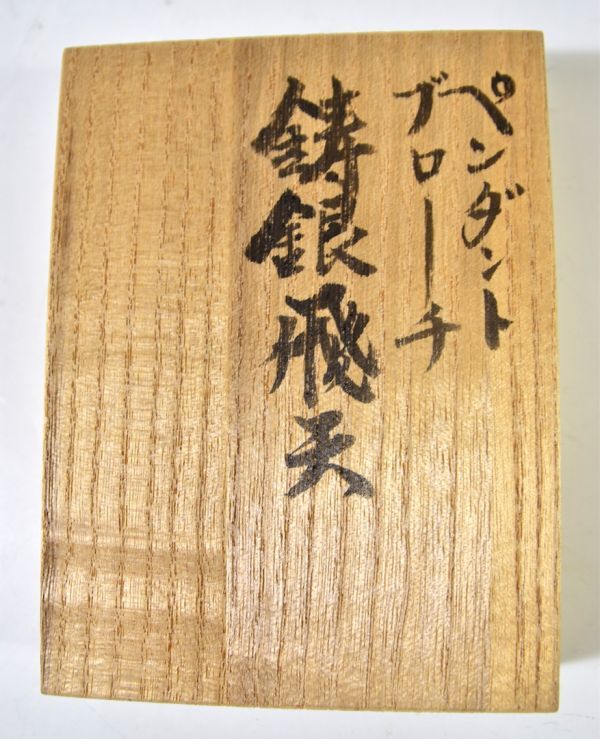 ペンダント
ブローチ
鋳銀飛天